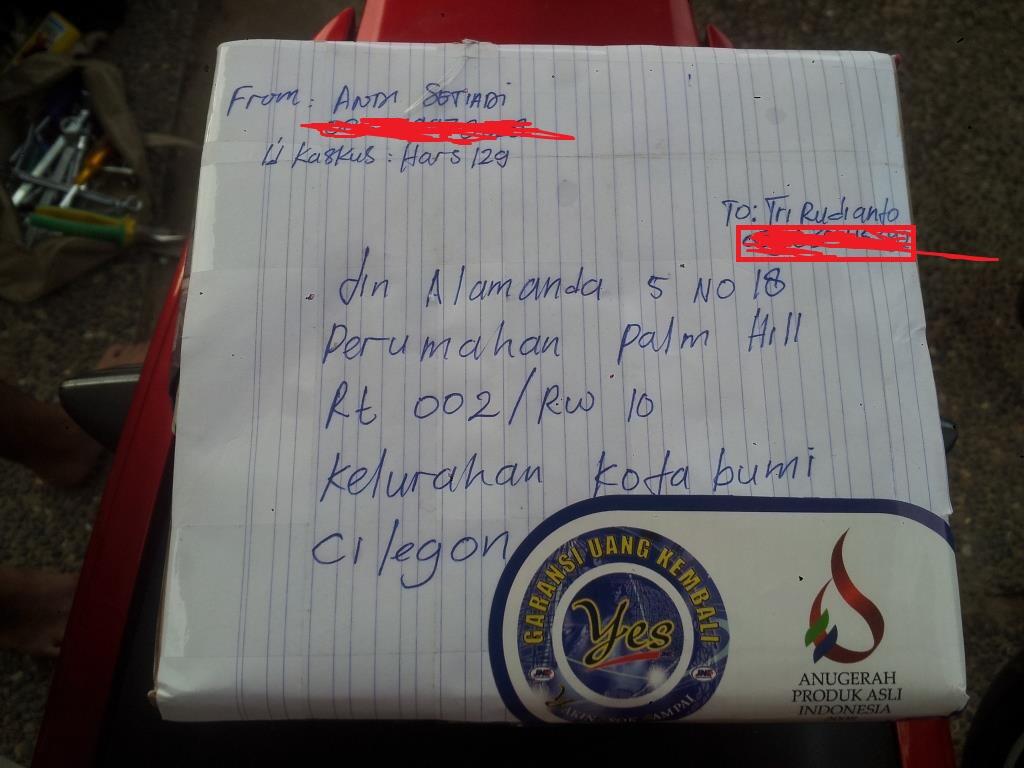 From: ANDI SETIADI
ID Kaskus : Hars129
TO: Tri Rudianto
Jln Alamanda 5 NO 18
Perumahan Palm Hill
Rt 002/RW 10
Kelurahan Kota bumi
Cilegon
GARANSI UANG KEMBALI
Yes
JNE JNE
YAKIN SAMPAI
ANUGERAH
PRODUK ASLI
INDONESIA